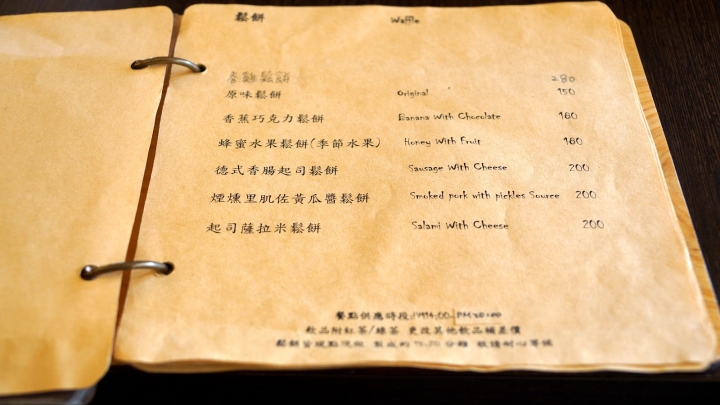 鬆餅 Waffle
鬆餅 280
原味鬆餅 Original 150
香蕉巧克力鬆餅 Banana With Chocolate 160
蜂蜜水果鬆餅(季節水果) Honey With Fruit 160
德式香腸起司鬆餅 Sausage With Cheese 200
煙燻里肌佐黃瓜醬鬆餅 Smoked pork with pickles Source 200
起司薩拉米鬆餅 Salami With Cheese 200
餐點供應時段:PM14:00-PM20:00
飲品附紅茶/綠茶 更改其他飲品補差價
鬆餅皆現點現做 製成約15-20分鐘 敬請耐心等候